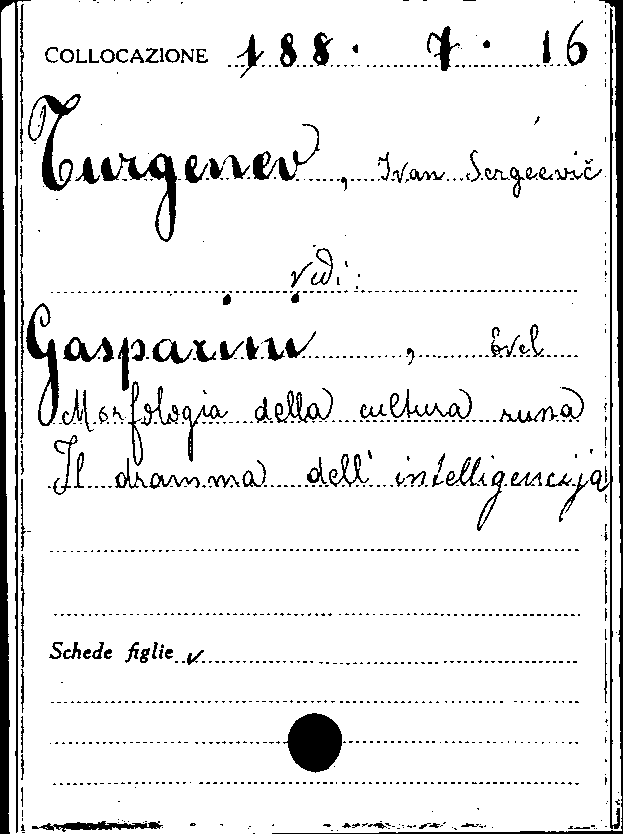 COLLOCAZIONE 188. 7. 16
Turgenev, Ivan Sergeevič
vedi:
Gasparini, Evel
Morfologia della cultura russa
Il dramma dell' intelligencija
Schede figlie ✓